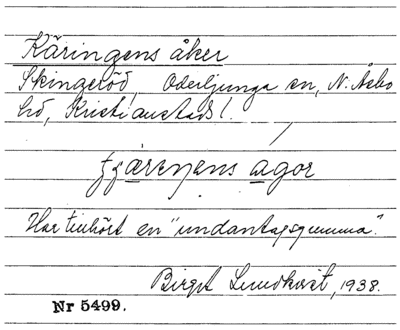 Käringens åker
Skingeröd, Oderljunga sn, N. Åsbo
hd, Kristianstads l.
agor
Har tillhört en "undantagsgumma".
Birgit Lundkvist, 1938.
Nr 5499.